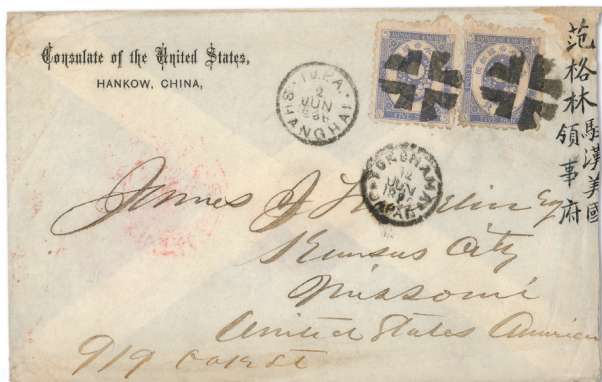 Consulate of the United States,
HANKOW, CHINA,
I.J.P.A.
2
JUN
SHANGHAI
FIVE SEN
FIVE SEN
YOKOHAMA
12
JUN
JAPAN
駐漢美國
范格林領事府
James J. Franklin Esq
Kansas City
Missouri
United States America
919 Oak St